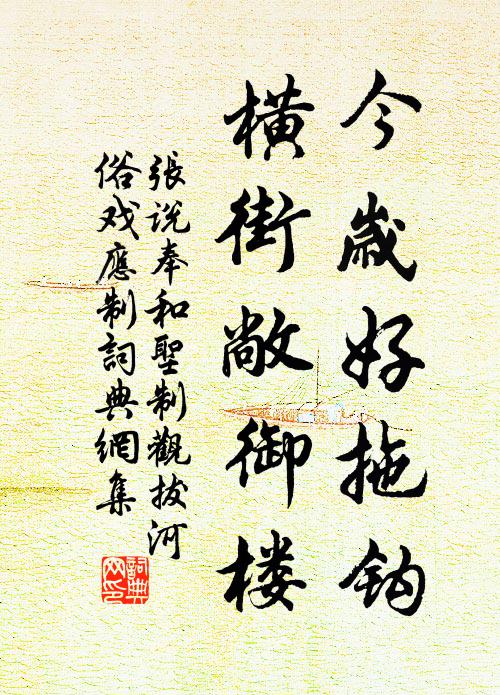 今歲好拖鈎
橫街敞御楼
張说奉和聖制觀拔河
俗戏應制詞典網集
詞典网印